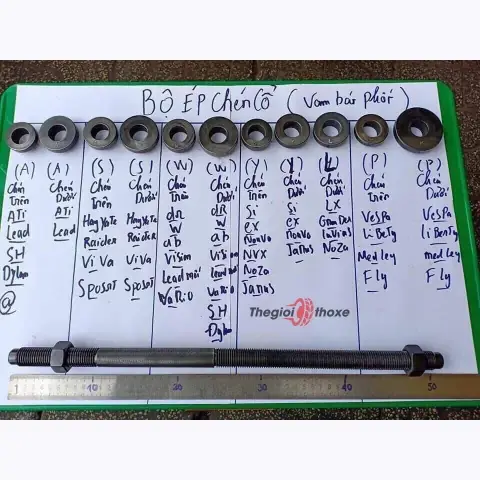 BỘ ÉP Chén Cổ (Vam bát phốt)
(A) (A) (S) (S) (W) (W) (Y) (Y) (L) (P) (P)
Chén Trên
ATi
Lead
SH
Dylan
@
Chén Dưới
ATi
Lead
Chén Trên
Hayate
Raider
ViVa
Sposot
Chén Dưới
Hayate
Raider
ViVa
Sposot
Chén Trên
dR
W
ab
Vision
Lead mới
VaRio
Chén Dưới
dR
W
ab
Vision
Lead mới
VaRio
SH
Dylan
Chén Trên
Si
ex
NouVo
NVX
NoZa
Janus
Chén Dưới
Si
ex
NouVo
Janus
Chén Dưới
LX
NoZa
Chén Trên
VesPa
LiBeTy
Medley
Fly
Chén Dưới
VesPa
LiBenTy
medley
Fly
Thegioi thoxe
1 10 20 30 40 50